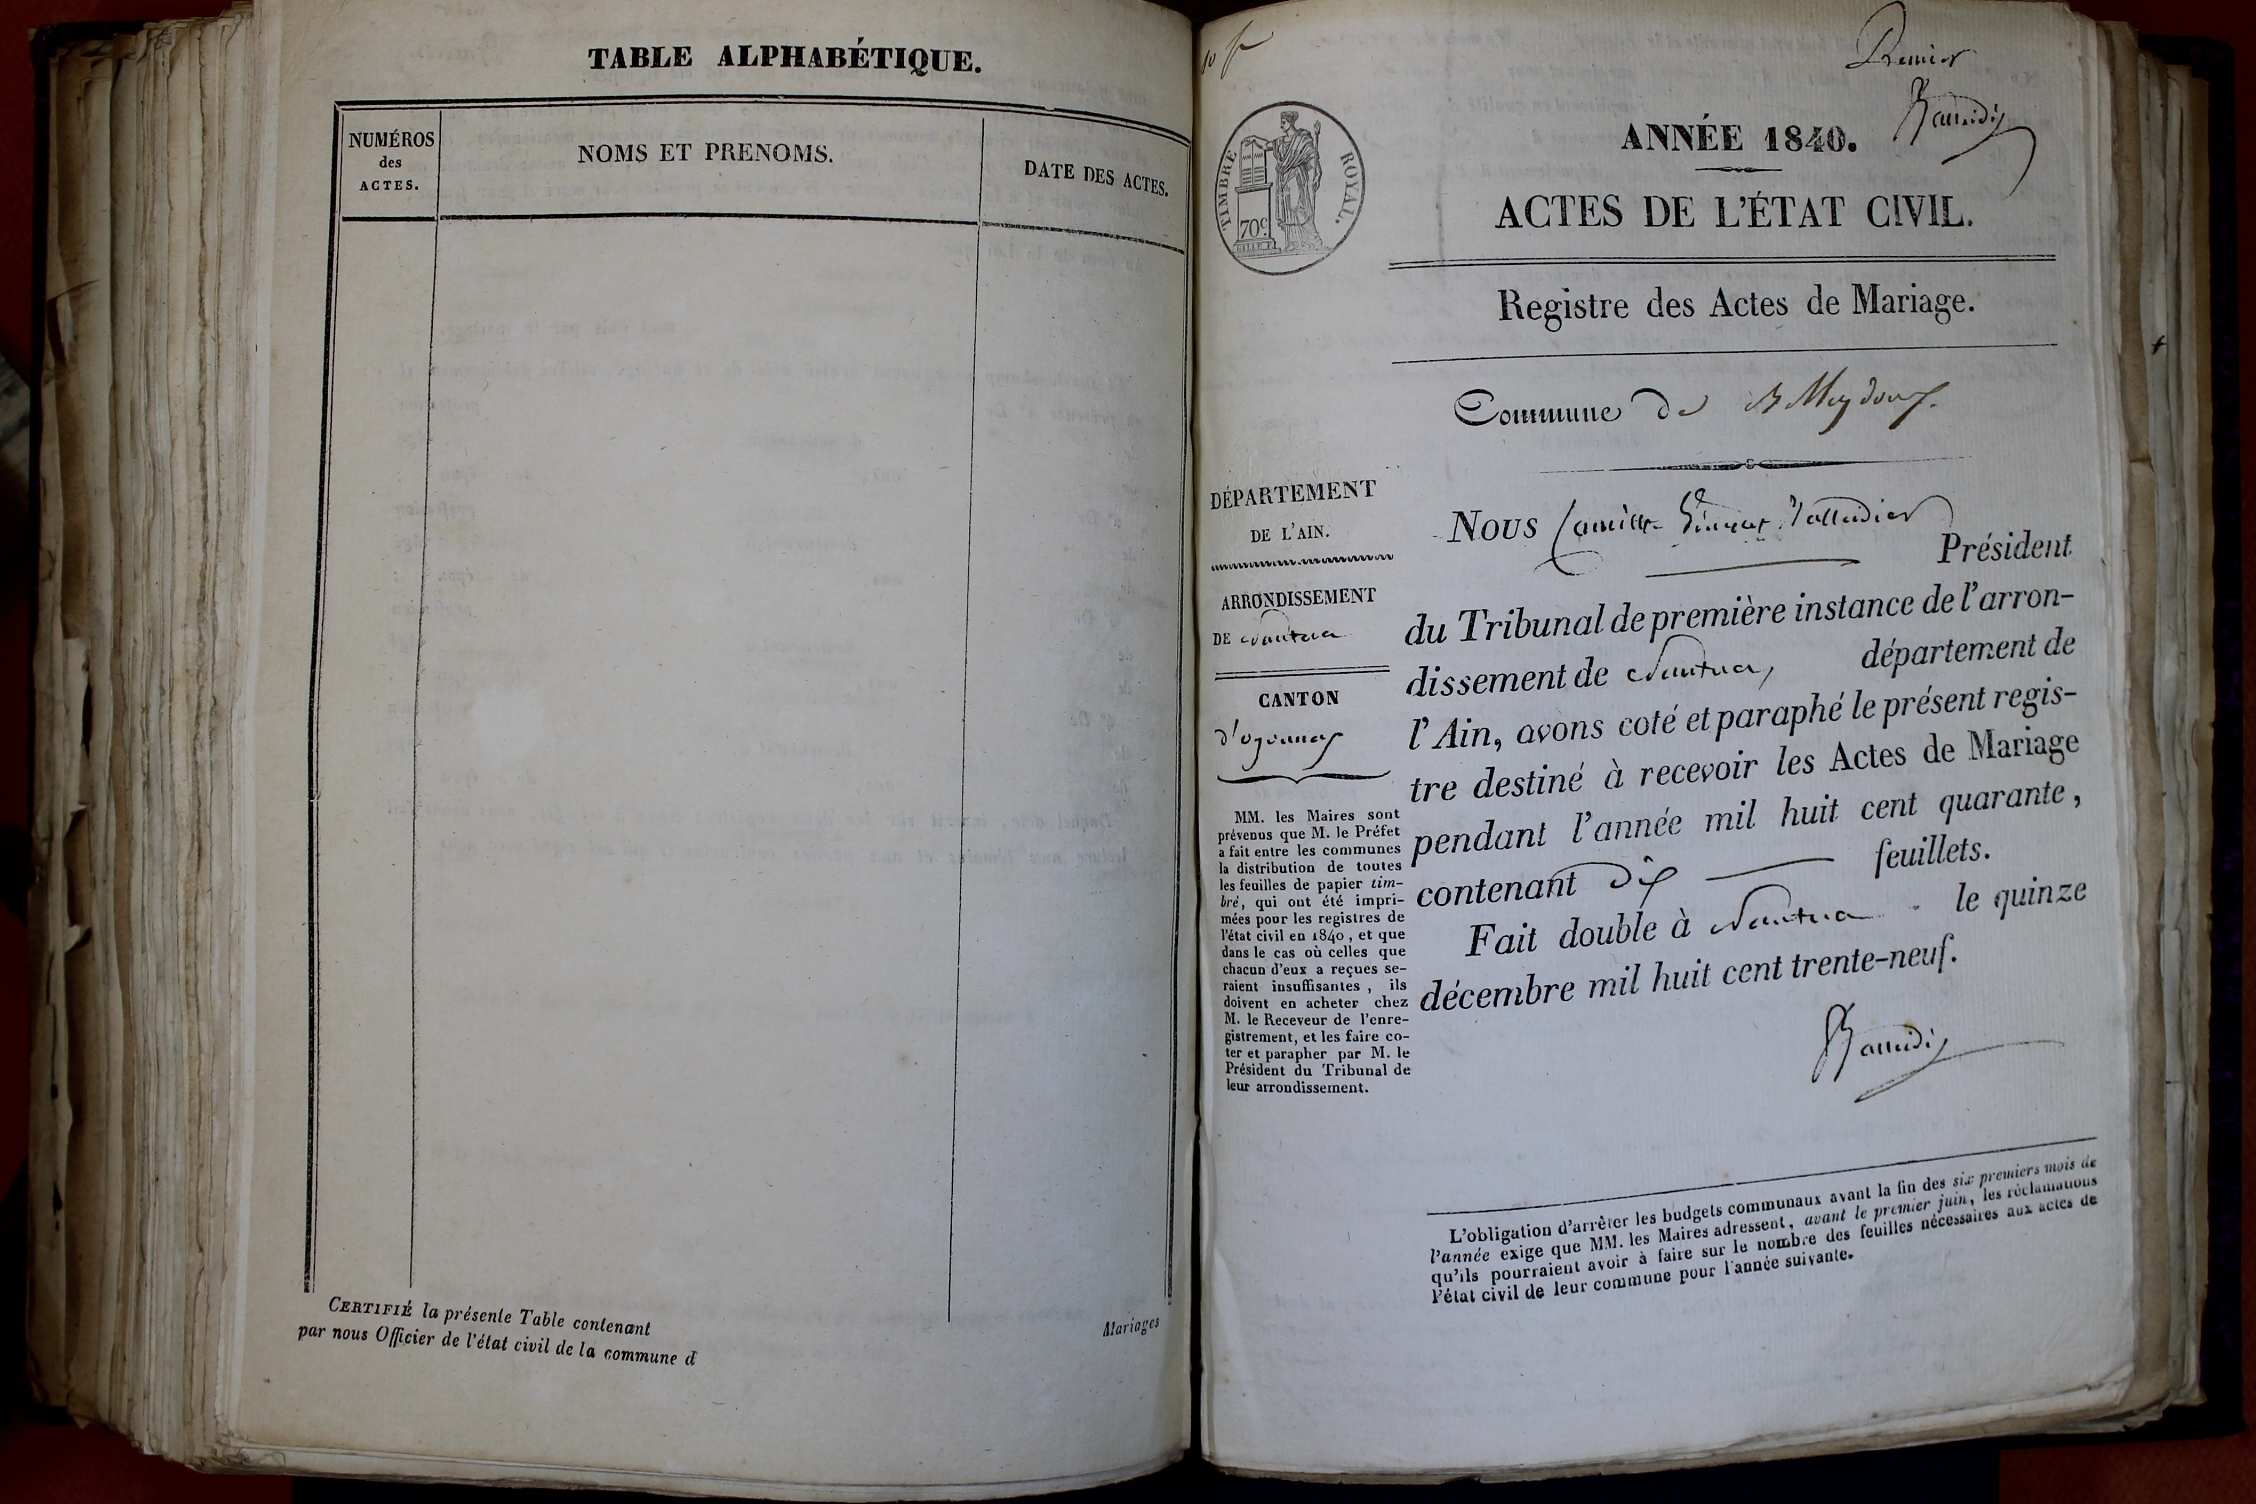 TABLE ALPHABÉTIQUE.
NUMÉROS
des
ACTES.
NOMS ET PRENOMS.
DATE DES ACTES.
CERTIFIÉ la présente Table contenant
Mariages
par nous Officier de l'état civil de la commune d
Premier
TIMBRE ROYAL.
70c.
ANNÉE 1840.
ACTES DE L'ÉTAT CIVIL.
Registre des Actes de Mariage.
Commune de
DÉPARTEMENT
DE L'AIN.
ARRONDISSEMENT
DE Nantua
CANTON
d'oyonnax
MM. les Maires sont
prévenus que M. le Préfet
a fait entre les communes
la distribution de toutes
les feuilles de papier tim-
bré, qui ont été impri-
mées pour les registres de
l'état civil en 1840, et que
dans le cas où celles que
chacun d'eux a reçues se-
raient insuffisantes, ils
doivent en acheter chez
M. le Receveur de l'enre-
gistrement, et les faire co-
ter et parapher par M. le
Président du Tribunal de
leur arrondissement.
Nous Camille
Président
du Tribunal de première instance de l'arron-
dissement de Nantua, département de
l'Ain, avons coté et paraphé le présent regis-
tre destiné à recevoir les Actes de Mariage
pendant l'année mil huit cent quarante,
contenant dix feuillets.
Fait double à Nantua le quinze
décembre mil huit cent trente-neuf.
L'obligation d'arrêter les budgets communaux avant la fin des six premiers mois de
l'année exige que MM. les Maires adressent, avant le premier juin, les réclamations
qu'ils pourraient avoir à faire sur le nombre des feuilles nécessaires aux actes de
l'état civil de leur commune pour l'année suivante.